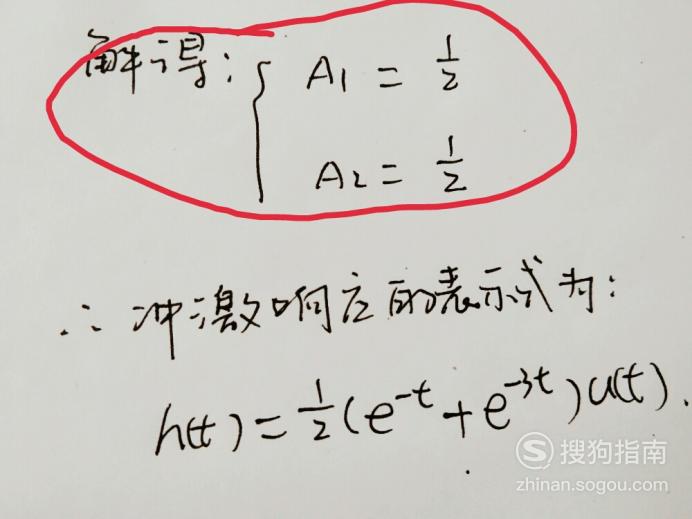 解得: { A₁ = 1/2
A₂ = 1/2
∴ 冲激响应的表示式为:
h(t) = 1/2 (e^{-t} + e^{-3t}) u(t).
搜狗指南
zhinan.sogou.com